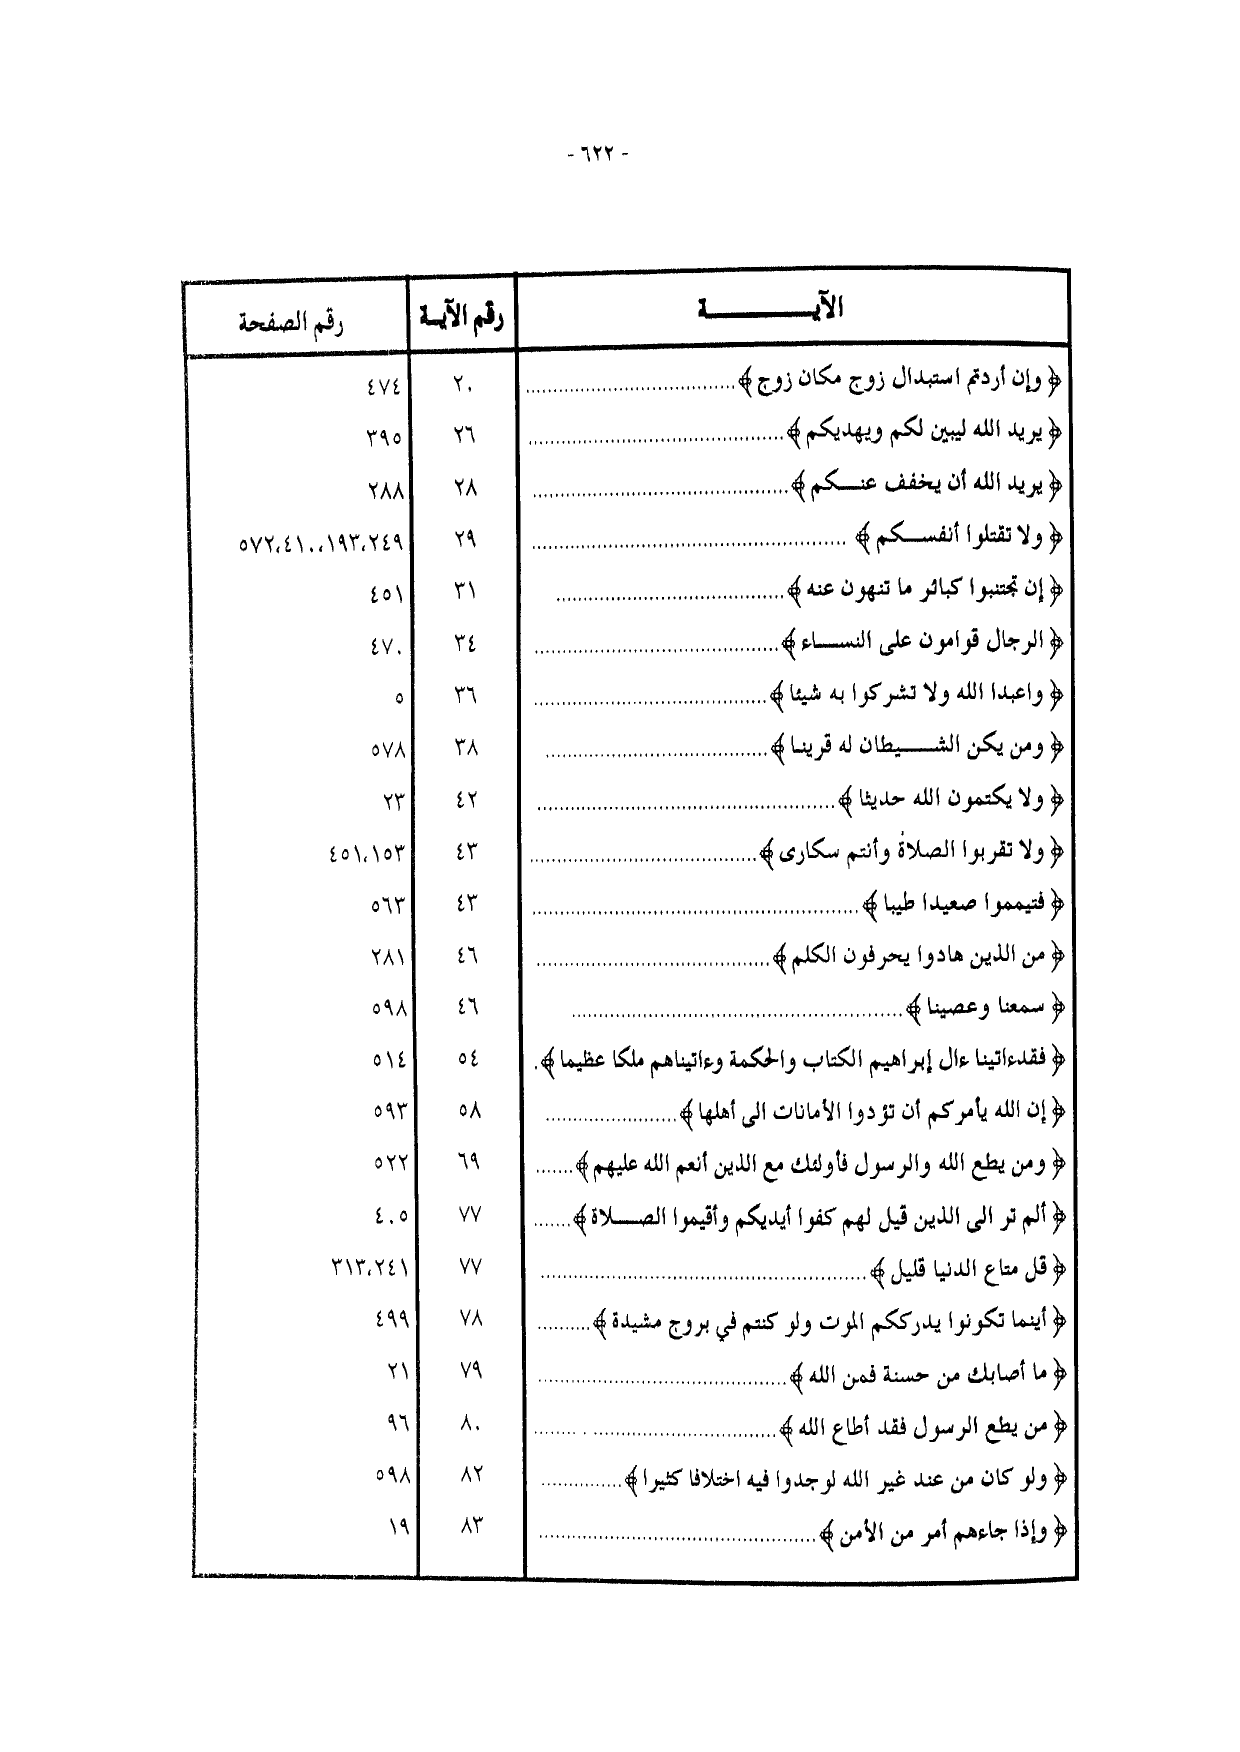 - ٦٢٢ -
الآيــــــــــة رقم الآيــة رقم الصفحة
﴿ وإن أردتم استبدال زوج مكان زوج ﴾ ٢٠ ٤٧٤
﴿ يريد الله ليبين لكم ويهديكم ﴾ ٢٦ ٣٩٥
﴿ يريد الله أن يخفف عنـــكم ﴾ ٢٨ ٢٨٨
﴿ ولا تقتلوا أنفســـكم ﴾ ٢٩ ٥٧٢،٤١٠،١٩٣،٢٤٩
﴿ إن تجتنبوا كبائر ما تنهون عنه ﴾ ٣١ ٤٥١
﴿ الرجال قوامون على النســـاء ﴾ ٣٤ ٤٧٠
﴿ واعبدا الله ولا تشركوا به شيئا ﴾ ٣٦ ٥
﴿ ومن يكن الشـــيطان له قرينا ﴾ ٣٨ ٥٧٨
﴿ ولا يكتمون الله حديثا ﴾ ٤٢ ٢٣
﴿ ولا تقربوا الصلاة وأنتم سكارى ﴾ ٤٣ ٤٥١،١٥٣
﴿ فتيمموا صعيدا طيبا ﴾ ٤٣ ٥٦٣
﴿ من الذين هادوا يحرفون الكلم ﴾ ٤٦ ٢٨١
﴿ سمعنا وعصينا ﴾ ٤٦ ٥٩٨
﴿ فقدءاتينا ءال إبراهيم الكتاب والحكمة وءاتيناهم ملكا عظيما ﴾ ٥٤ ٥١٤
﴿ إن الله يأمركم أن تؤدوا الأمانات الى أهلها ﴾ ٥٨ ٥٩٣
﴿ ومن يطع الله والرسول فأولئك مع الذين أنعم الله عليهم ﴾ ٦٩ ٥٢٢
﴿ ألم تر الى الذين قيل لهم كفوا أيديكم وأقيموا الصـــلاة ﴾ ٧٧ ٤٠٥
﴿ قل متاع الدنيا قليل ﴾ ٧٧ ٣١٣،٢٤١
﴿ أينما تكونوا يدرككم الموت ولو كنتم في بروج مشيدة ﴾ ٧٨ ٤٩٩
﴿ ما أصابك من حسنة فمن الله ﴾ ٧٩ ٢١
﴿ من يطع الرسول فقد أطاع الله ﴾ ٨٠ ٩٦
﴿ ولو كان من عند غير الله لوجدوا فيه اختلافا كثيرا ﴾ ٨٢ ٥٩٨
﴿ وإذا جاءهم أمر من الأمن ﴾ ٨٣ ١٩